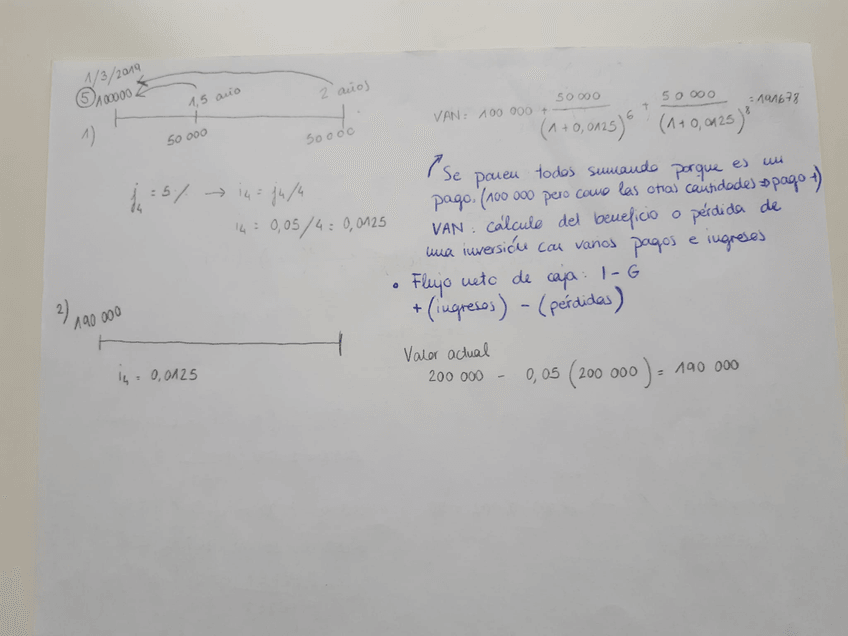 1/3/2019
5 100000
1,5 año
2 años
1)
50 000
50 000
j4 = 5% → i4 = j4/4
i4 = 0,05/4 = 0,0125
VAN = 100 000 + 50 000/(1+0,0125)^6 + 50 000/(1+0,0125)^8 = 191678
Se ponen todos sumando porque es un
pago. (100 000 pero como las otras cantidades ⇒ pago +)
VAN: cálculo del beneficio o pérdida de
una inversión con varios pagos e ingresos
• Flujo neto de caja: I - G
+ (ingresos) - (pérdidas)
2) 190 000
i4 = 0,0125
Valor actual
200 000 - 0,05 (200 000) = 190 000